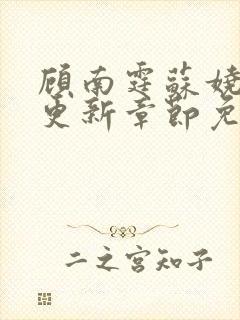 顾南霆蘇嬈
更新章節免
二之宫知子